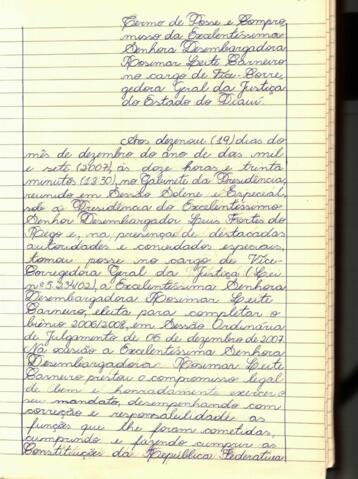 Termo de Posse e Compro
misso da Excelentíssima
Senhora Desembargadora
Rosimar Leite Carneiro
no cargo de Vice-Corre,
gedora Geral da Justiça
do Estado do Piauí.
Aos dezenove (19) dias do
mês de dezembro do ano de dois mil
e sete (2007), às doze horas e trinta
minutos (12:30), no Gabinete da Presidência,
reunido em Sessão Solene e Especial,
sob a Presidência do Excelentíssimo
Senhor Desembargador Luís Fortes do
Rêgo e, na presença de destacadas
autoridades e convidados especiais,
tomou posse no cargo de Vice-
Corregedora Geral da Justiça (Lei
nº 5.234/02), a Excelentíssima Senhora
Desembargadora Rosimar Leite
Carneiro, eleita para completar o
biênio 2006/2008, em Sessão Ordinária
de Julgamento de 06 de dezembro de 2007.
Na ocasião a Excelentíssima Senhora
Desembargadora Rosimar Leite
Carneiro prestou o compromisso legal
de bem e honradamente exercer o
seu mandato, desempenhando com
correção e responsabilidade as
funções que lhe foram cometidas,
cumprindo e fazendo cumprir as
Constituições da República Federativa